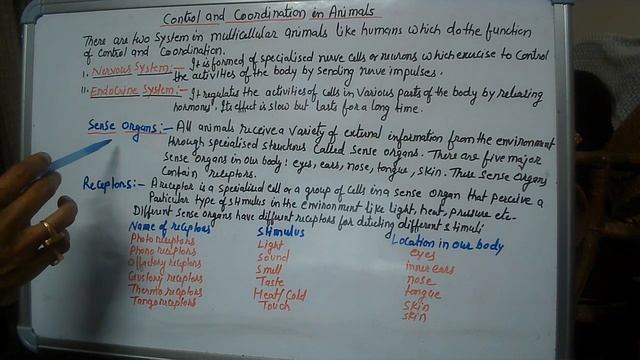 Control and Coordination in Animals
There are two System in multicellular animals like humans which do the function
of Control and Coordination.
I. Nervous System:- It is formed of specialised nerve cells or neurons which exercise to Control
the activities of the body by sending nerve impulses.
II. Endocrine System:- It regulates the activities of cells in various parts of the body by releasing
hormones. Its effect is slow but lasts for a long time.
Sense Organs:- All animals receive a variety of external information from the environment
through specialised structures called Sense organs. There are five major
Sense Organs in our body: eyes, ears, nose, tongue, skin. These Sense Organs
Contain receptors.
Receptors:- A receptor is a specialised cell or a group of cells in a sense Organ that perceive a
Particular type of stimulus in the environment like Light, heat, pressure etc.
Different Sense organs have different receptors for detecting different stimuli
Name of receptors Stimulus Location in our body
Photoreceptors Light eyes
Phonoreceptors Sound inner ears
Olfactory receptors Smell nose
Gustatory receptors Taste tongue
Thermoreceptors Heat/Cold skin
Tangoreceptors Touch skin